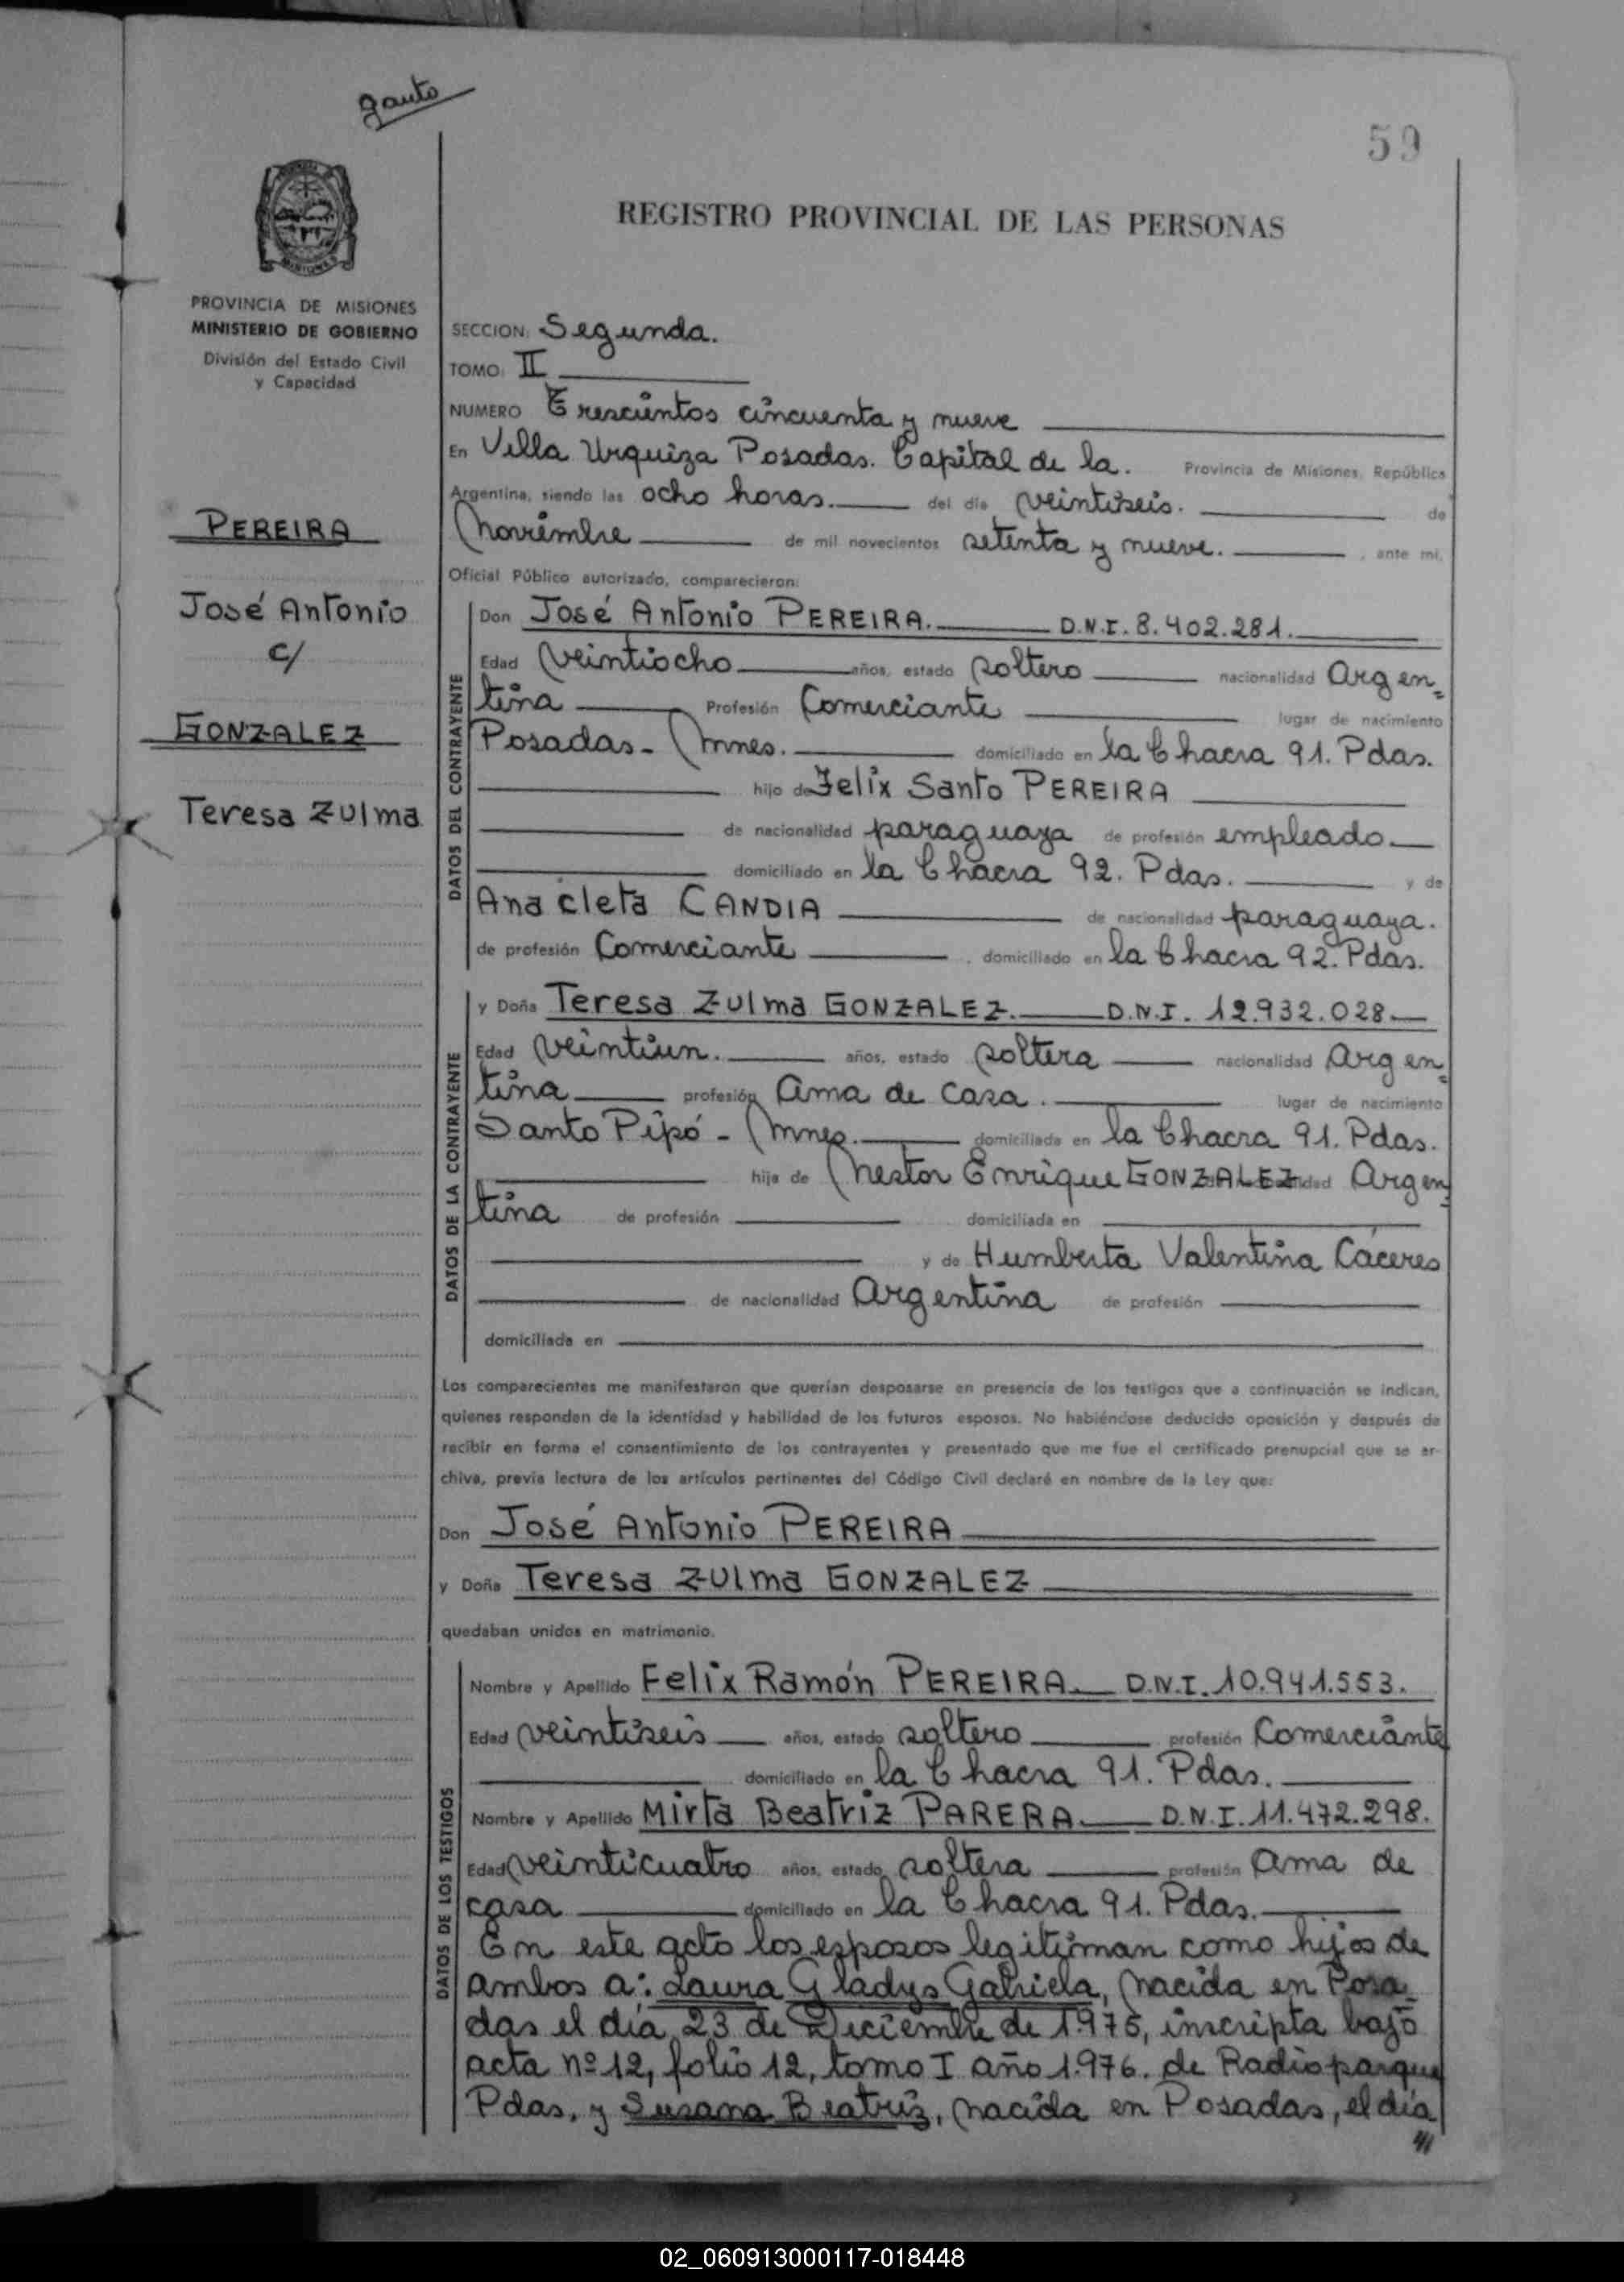 gauto
59
REGISTRO PROVINCIAL DE LAS PERSONAS
MISIONES
PROVINCIA DE MISIONES
MINISTERIO DE GOBIERNO
División del Estado Civil
y Capacidad
PEREIRA
José Antonio
c/
GONZALEZ
Teresa Zulma
SECCION: Segunda.
TOMO: II
NUMERO Trescientos cincuenta y nueve
En Villa Urquiza Posadas. Capital de la. Provincia de Misiones, República
Argentina, siendo las ocho horas. del día veintiseis. de
noviembre de mil novecientos setenta y nueve. , ante mí,
Oficial Público autorizado, comparecieron:
DATOS DEL CONTRAYENTE
Don José Antonio PEREIRA. D.N.I. 8.402.281.
Edad veintiocho años, estado soltero nacionalidad Argen=
tina Profesión Comerciante lugar de nacimiento
Posadas - Mnes. domiciliado en la Chacra 91. Pdas.
hijo de Felix Santo PEREIRA
de nacionalidad paraguaya de profesión empleado.
domiciliado en la Chacra 92. Pdas. y de
Anacleta CANDIA de nacionalidad paraguaya.
de profesión Comerciante , domiciliado en la Chacra 92. Pdas.
DATOS DE LA CONTRAYENTE
y Doña Teresa Zulma GONZALEZ. D.N.I. 12.932.028
Edad veintiun. años, estado soltera nacionalidad Argen=
tina profesión Ama de casa. lugar de nacimiento
Santo Pipó - Mnes. domiciliada en la Chacra 91. Pdas.
hija de Nestor Enrique GONZALEZ Argen=
tina de profesión domiciliada en
y de Humberta Valentina Cáceres
de nacionalidad Argentina de profesión
domiciliada en
Los comparecientes me manifestaron que querían desposarse en presencia de los testigos que a continuación se indican,
quienes responden de la identidad y habilidad de los futuros esposos. No habiéndose deducido oposición y después de
recibir en forma el consentimiento de los contrayentes y presentado que me fue el certificado prenupcial que se ar-
chiva, previa lectura de los artículos pertinentes del Código Civil declaré en nombre de la Ley que:
Don José Antonio PEREIRA
y Doña Teresa Zulma GONZALEZ
quedaban unidos en matrimonio.
DATOS DE LOS TESTIGOS
Nombre y Apellido Felix Ramón PEREIRA. D.N.I. 10.941.553.
Edad veintiseis años, estado soltero profesión Comerciante
domiciliado en la Chacra 91. Pdas.
Nombre y Apellido Mirta Beatriz PARERA. D.N.I. 11.472.298.
Edad veinticuatro años, estado soltera profesión Ama de
casa domiciliado en la Chacra 91. Pdas.
En este acto los esposos legitiman como hijos de
ambos a: Laura Gladys Gabriela, nacida en Posa=
das el día 23 de Diciembre de 1.975, inscripta bajo
acta nº 12, folio 12, tomo I año 1.976. de Radioparque
Pdas, y Susana Beatriz, nacida en Posadas, el día
02_060913000117-018448